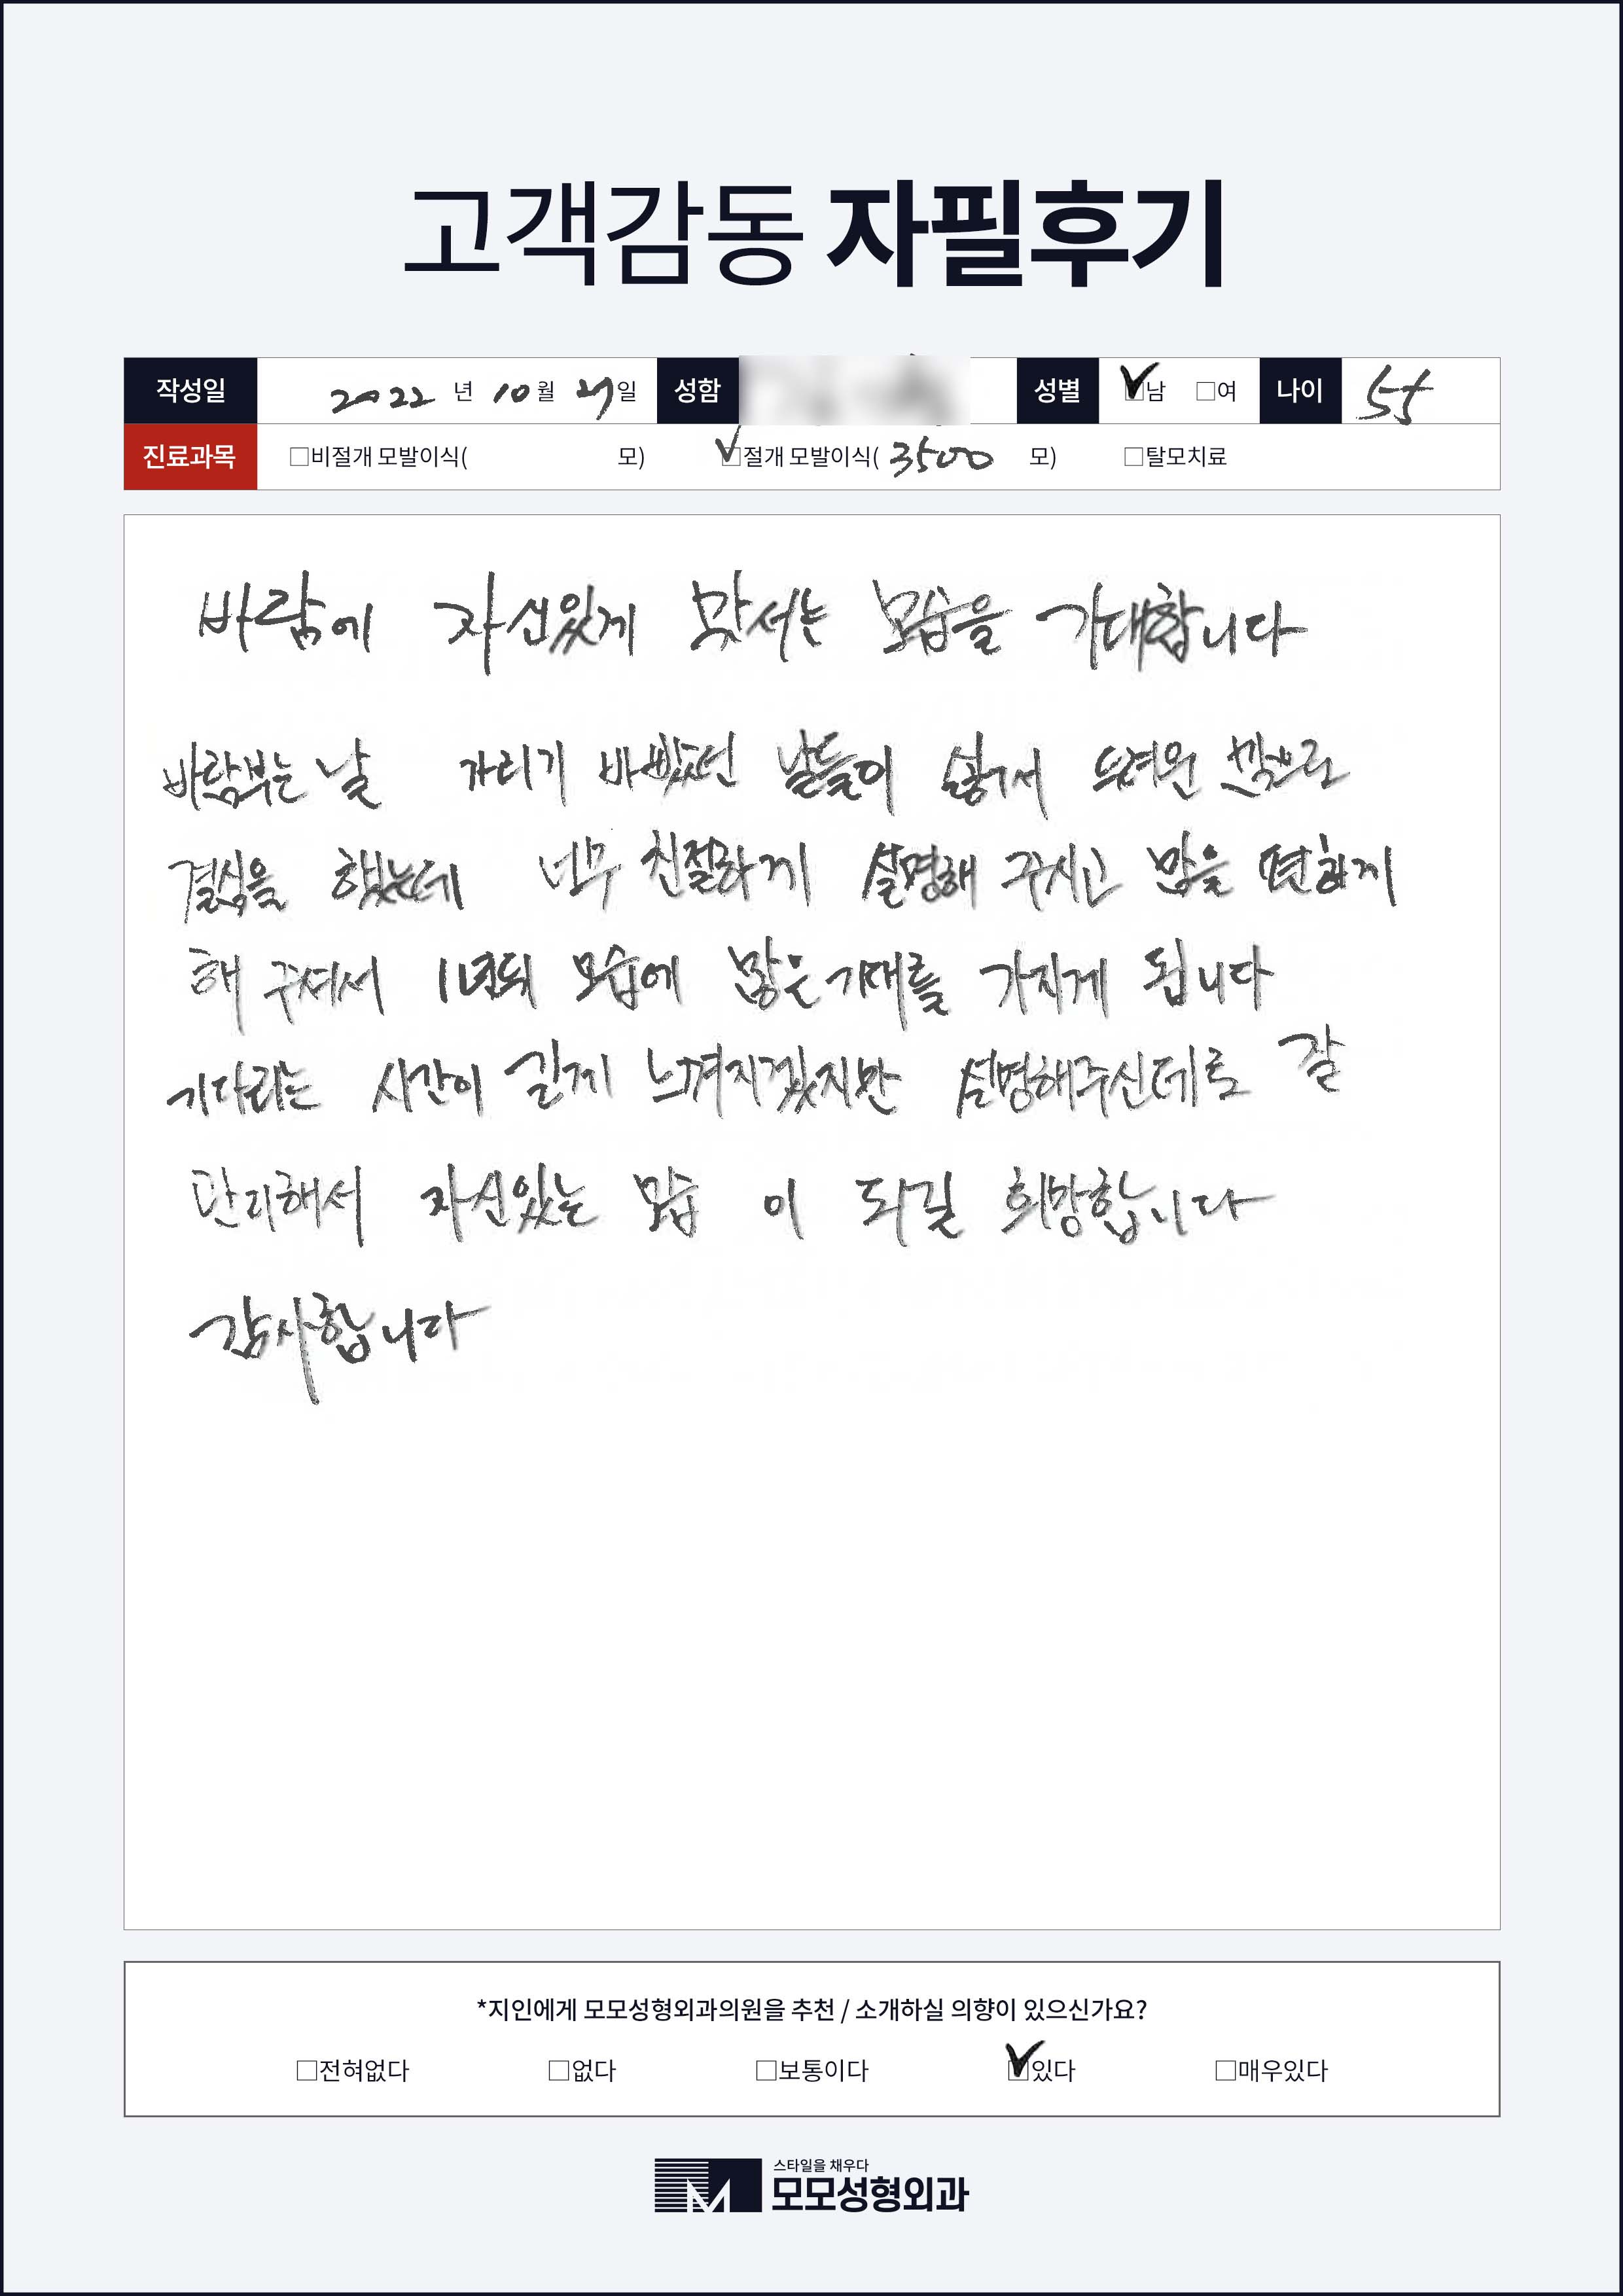 고객감동 자필후기
작성일 2022 년 10 월 일 성함 성별 ☑남 □여 나이 55
진료과목 □비절개 모발이식( 모) ☑절개 모발이식( 3500 모) □탈모치료
바람에 자신있게 맞서는 모습을 기대합니다
바람부는 날 가리기 바빴던 날들이 싫어서 두려운 맘으로
결심을 했는데 너무 친절하게 설명해 주시고 맘을 편하게
해 주셔서 1년뒤 모습에 많은 기대를 가지게 됩니다
기다리는 시간이 길게 느껴지겠지만 설명해주신데로 잘
관리해서 자신있는 모습 이 되길 희망합니다
감사합니다
*지인에게 모모성형외과의원을 추천 / 소개하실 의향이 있으신가요?
□전혀없다 □없다 □보통이다 ☑있다 □매우있다
스타일을 채우다
모모성형외과